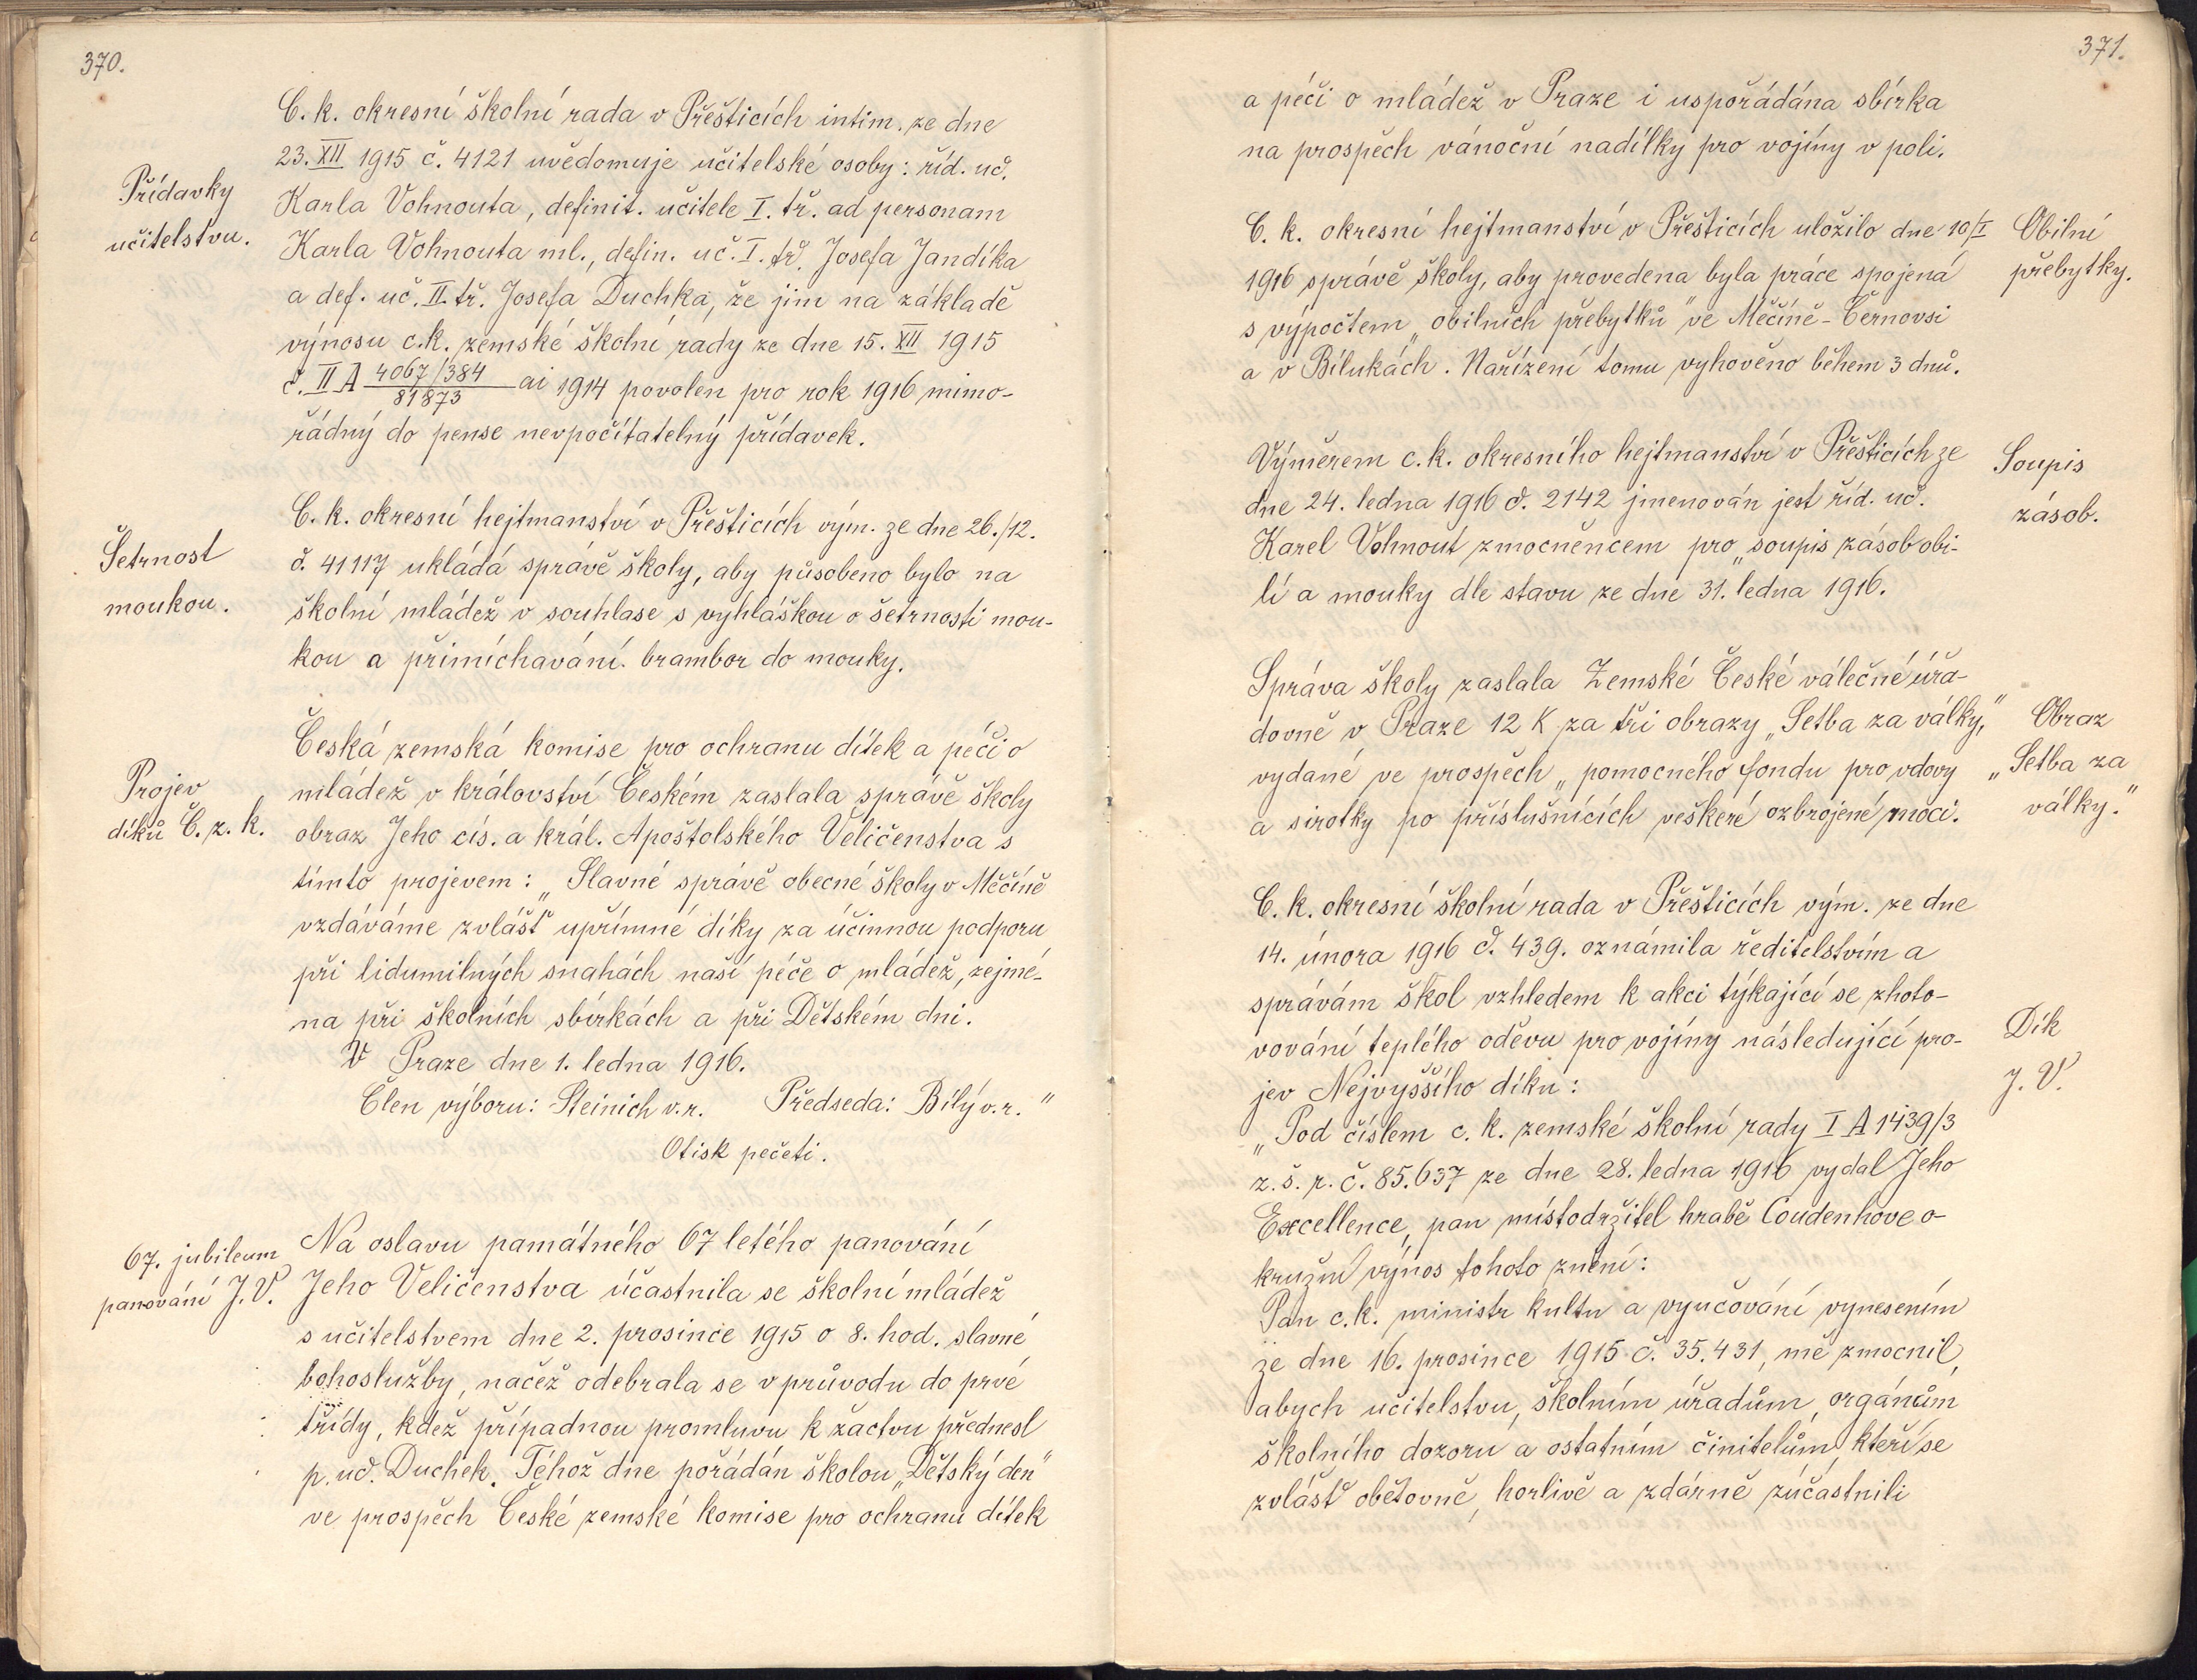 370.
C. k. okresní školní rada v Přešticích intim. ze dne
23. XII 1915 č. 4121 uvědomuje učitelské osoby: říd. uč.
Přídavky
učitelstvu.
Karla Vohnouta, definit. učitele I. tř. ad personam
Karla Vohnouta ml., defin. uč. I. tř. Josefa Jandíka
a def. uč. II. tř. Josefa Duchka, že jim na základě
výnosu c.k. zemské školní rady ze dne 15. XII 1915
č. II A 4067/384 / 81873 ai 1914 povolen pro rok 1916 mimo-
řádný do pense nevpočítatelný přídavek.
Šetrnost
moukou.
C. k. okresní hejtmanství v Přešticích vým. ze dne 26./12.
č. 41117 ukládá správě školy, aby působeno bylo na
školní mládež v souhlase s vyhláškou o šetrnosti mou-
kou a přimíchavání. brambor do mouky.
Projev
díků Č. z. k.
Česká zemská komise pro ochranu dítek a péči o
mládež v království Českém zaslala správě školy
obraz Jeho cís. a král. Apoštolského Veličenstva s
tímto projevem: „Slavné správě obecné školy v Měčíně
vzdáváme zvlášť upřímné díky za účinnou podporu
při lidumilných snahách naší péče o mládež, zejmé-
na při školních sbírkách a při Dětském dni.
V Praze dne 1. ledna 1916.
Člen výboru: Steinich v.r. Předseda: Bílý v.r."
Otisk pečeti.
67. jubileum
panování J. V.
Na oslavu památného 67 letého panování
Jeho Veličenstva účastnila se školní mládež
s učitelstvem dne 2. prosince 1915 o 8. hod. slavné
bohoslužby, načež odebrala se v průvodu do prvé
třídy, kdež případnou promluvu k žactvu přednesl
p. uč. Duchek. Téhož dne pořádán školou „Dětský den"
ve prospěch České zemské komise pro ochranu dítek
371.
a péči o mládež v Praze i uspořádána sbírka
na prospěch vánoční nadílky pro vojíny v poli.
C. k. okresní hejtmanství v Přešticích uložilo dne 10/I
1916 správě školy, aby provedena byla práce spojená
s výpočtem „obilních přebytků" ve Měčíně-Černovsi
a v Bílukách. Nařízení tomu vyhověno během 3 dnů.
Obilní
přebytky.
Výměrem c.k. okresního hejtmanství v Přešticích ze
dne 24. ledna 1916 č. 2142 jmenován jest říd. uč.
Karel Vohnout zmocněncem pro „soupis zásob obi-
lí a mouky dle stavu ze dne 31. ledna 1916.
Soupis
zásob.
Správa školy zaslala Zemské České válečné úřa-
dovně v Praze 12 K za tři obrazy „Setba za války,"
vydané ve prospěch „pomocného fondu pro vdovy
a sirotky po příslušnících veškeré ozbrojené moci.
Obraz
„Setba za
války."
C. k. okresní školní rada v Přešticích vým. ze dne
14. února 1916 č. 439. oznámila ředitelstvím a
správám škol vzhledem k akci týkající se zhoto-
vování teplého oděvu pro vojíny následující pro-
jev Nejvyššího díku:
Dík
J. V.
„Pod číslem c. k. zemské školní rady I A 1439/3
z. š. r. č. 85.637 ze dne 28. ledna 1916 vydal Jeho
Excellence, pan místodržitel hrabě Coudenhove o-
kružní výnos tohoto znění:
Pan c.k. ministr kultu a vyučování vynesením
ze dne 16. prosince 1915 č. 35.431, mě zmocnil,
abych učitelstvu, školním úřadům, orgánům
školního dozoru a ostatním činitelům, kteří se
zvlášť obětovně, horlivě a zdárně zúčastnili